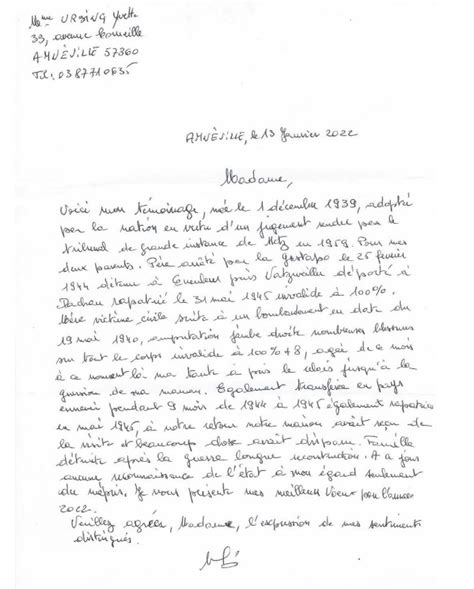 Mme URSING Yvette
33, avenue Corneille
AMNÈVILLE 57360
Tél: 0387710635
AMNÈVILLE, le 13 Janvier 2022
Madame,
Voici mon témoignage, née le 1 décembre 1939, adoptée
par la nation en vertu d'un jugement rendu par le
tribunal de grande instance de Metz en 1959. Pour mes
deux parents. Père arrêté par la gestapo le 25 février
1944 détenu à Queuleu puis Natzwiller déporté à
Dachau rapatrié le 31 mai 1945 invalide à 100%.
Mère victime civile suite à un bombardement en date du
19 mai 1940, amputation jambe droite nombreuses blessures
sur tout le corps invalide à 100% + 8, agée de 6 mois
à ce moment là ma tante à pris le relais jusqu'à la
guérison de ma maman. Egalement transférée en pays
ennemi pendant 9 mois de 1944 à 1945 également rapatriée
en mai 1945, à notre retour notre maison avait reçu de
la visite et beaucoup chose avait disparu. Famille
détruite après la guerre longue reconstruction. A a jour
aucune reconnaissance de l'état à mon égard seulement
du mépris. Je vous présente mes meilleurs Voeux pour l'année
2022.
Veuillez agréer, Madame, l'expression de mes sentiments
distingués.